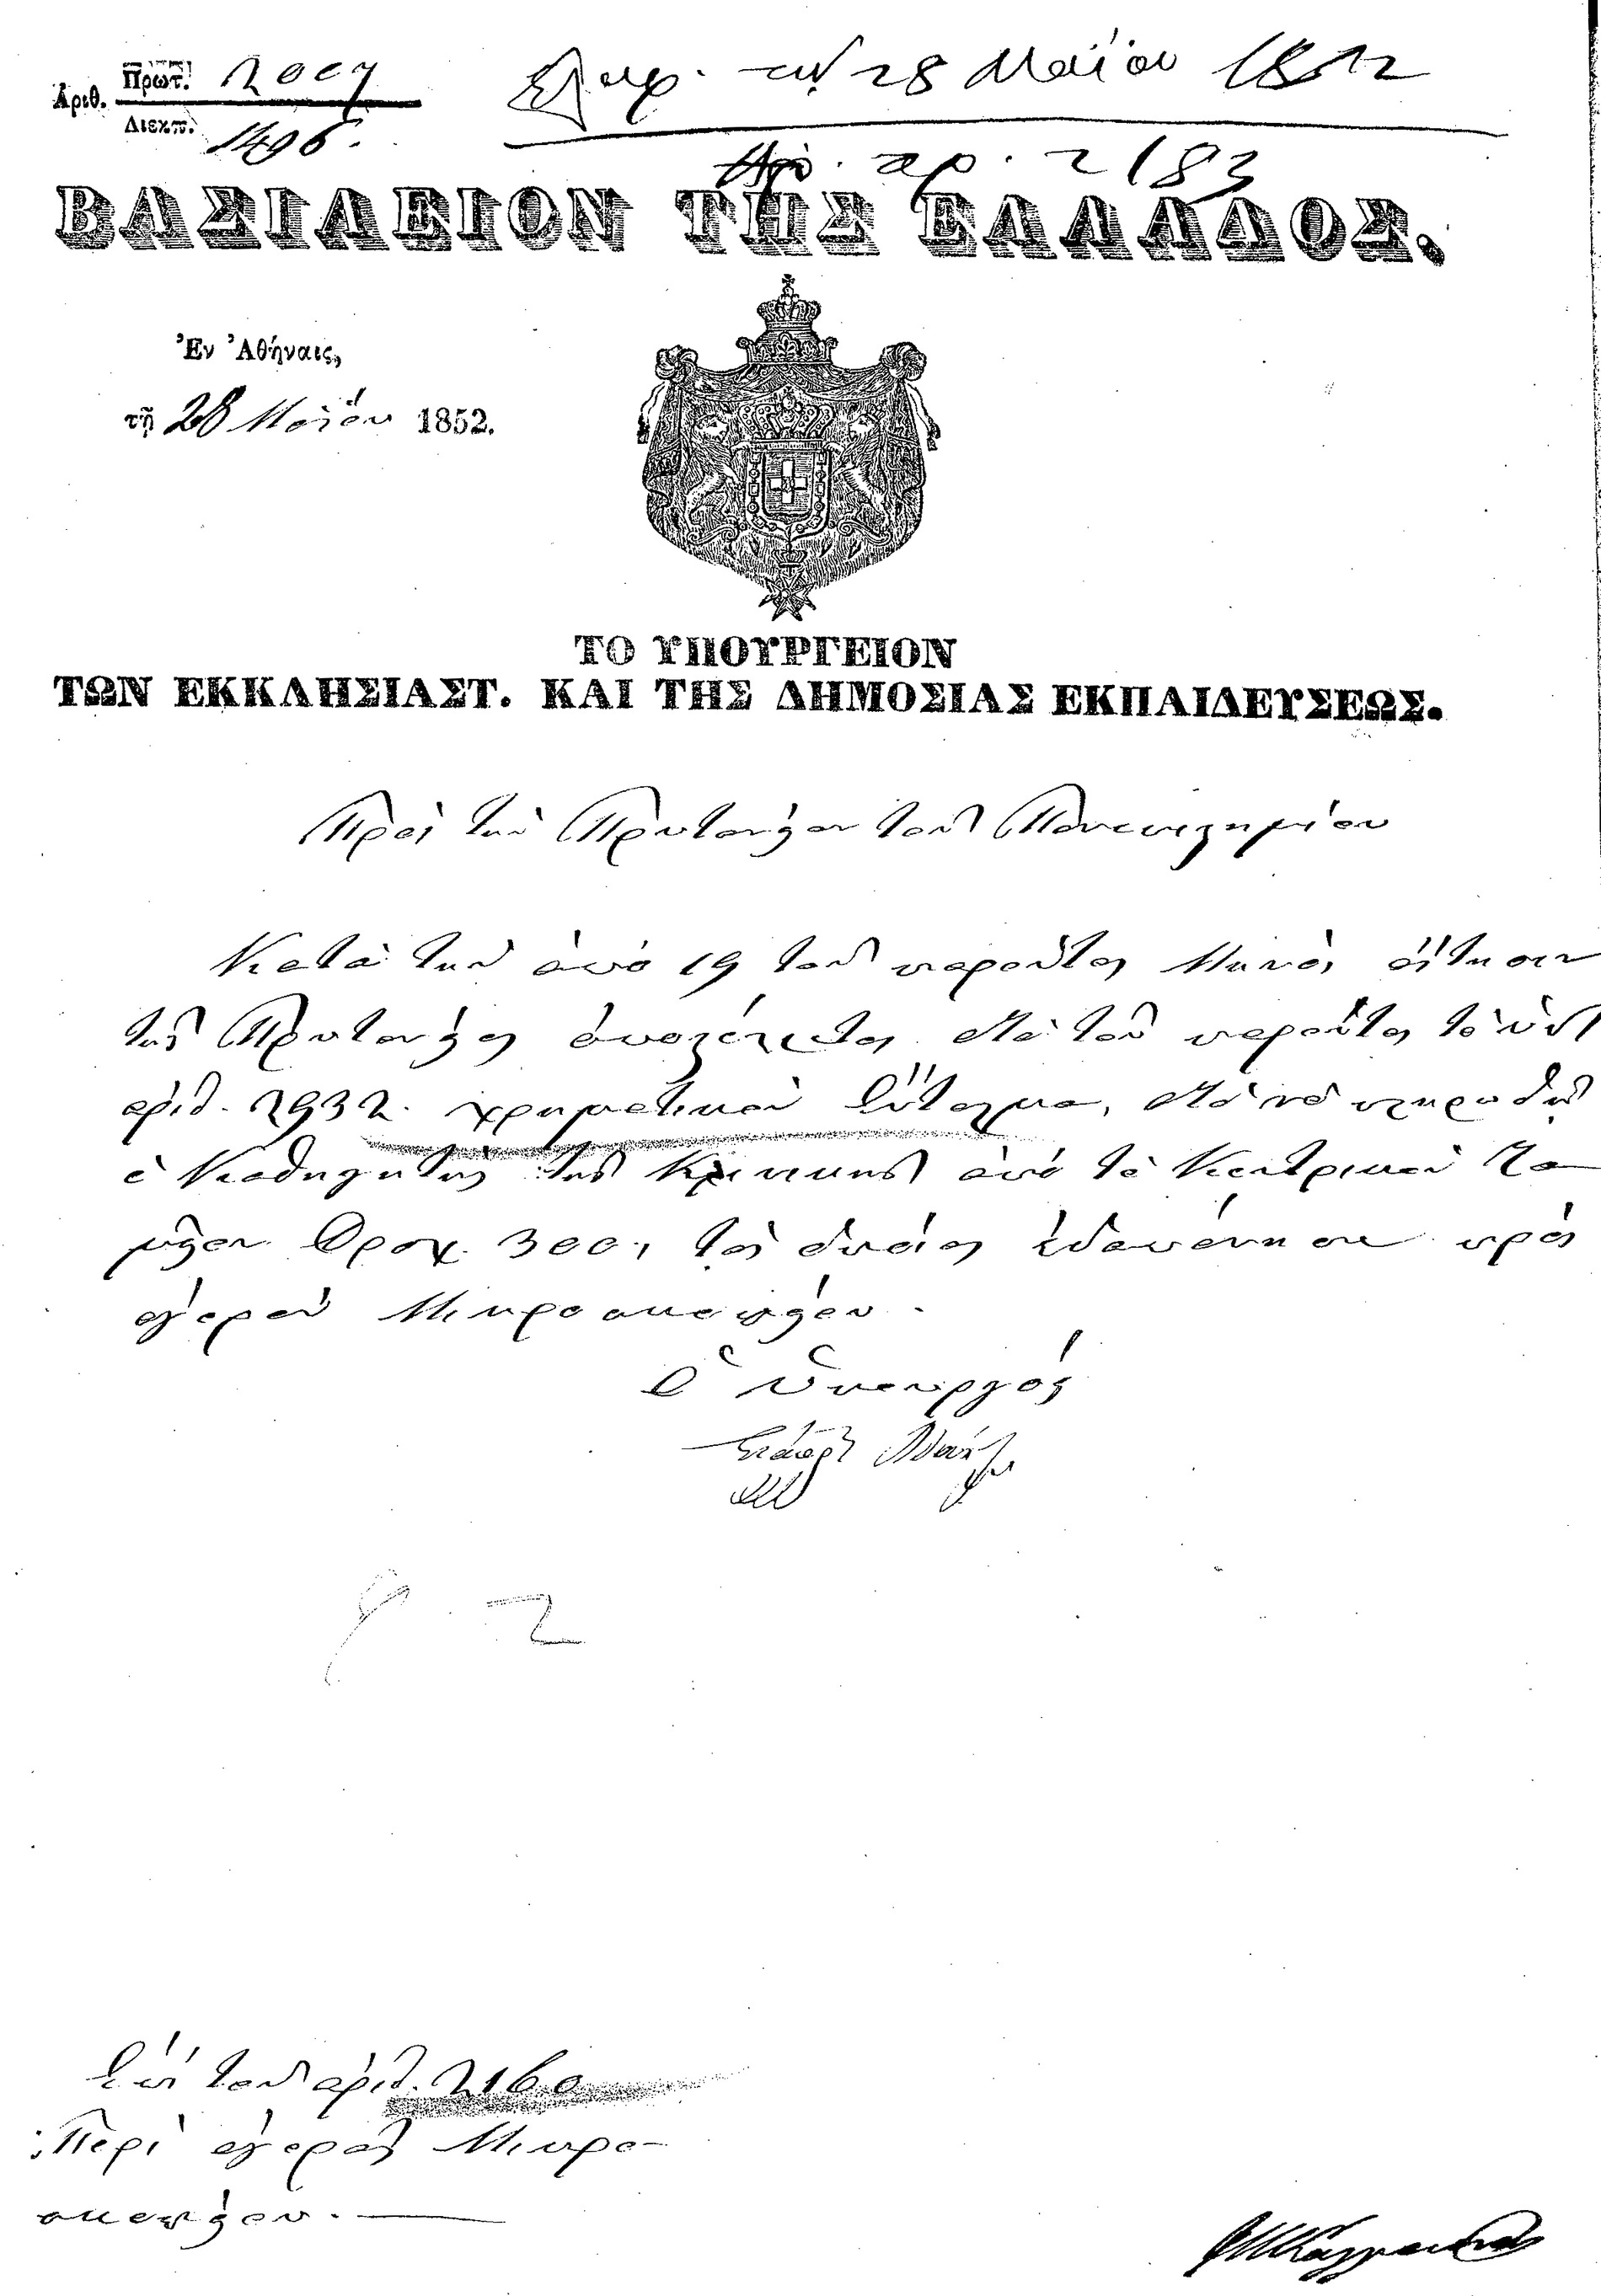 Ἀριθ. Πρωτ. 2007
Διεκπ. 1496.
τὴν 28 Μαΐου 1852
Πρ. αρ. 2183
ΒΑΣΙΛΕΙΟΝ ΤΗΣ ΕΛΛΑΔΟΣ.
Ἐν Ἀθήναις,
τῇ 28 Μαΐου 1852.
ΤΟ ΥΠΟΥΡΓΕΙΟΝ
ΤΩΝ ΕΚΚΛΗΣΙΑΣΤ. ΚΑΙ ΤΗΣ ΔΗΜΟΣΙΑΣ ΕΚΠΑΙΔΕΥΣΕΩΣ.
Πρὸς τὴν Πρυτανείαν τοῦ Πανεπιστημίου
Κατὰ τὴν ἀπὸ 19 τοῦ παρόντος Μηνὸς αἴτησιν
τῆς Πρυτανείας ἀποστέλλεται μετὰ τοῦ παρόντος τὸ ὑπ'
ἀριθ. 2932. χρηματικὸν ἔνταλμα, διὰ νὰ πληρωθῇ
ὁ Καθηγητὴς τῆς Κλινικῆς ἀπὸ τὸ Κεντρικὸν Τα
μεῖον Δραχ. 300, τὰς ὁποίας ἐδαπάνησε πρὸς
ἀγορὰν Μικροσκοπίου.
Ὁ Ὑπουργός
Ἐπὶ τοῦ ἀριθ. 2160
Περὶ ἀγορᾶς Μικρο-
σκοπίου.